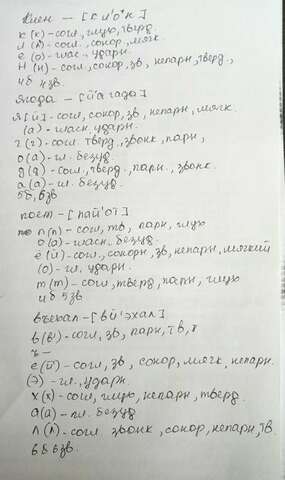 Клён – [к л'о н]
к (к) – согл, глух, тверд.
л (л) – согл, сонор, мягк.
ё (о) – глас., ударн.
н (н) – согл, сонор, зв, непарн, тверд.,
4б 4зв.
Ягода – [й'а гада]
я [й] – согл, сонор, зв, непарн, мягк.
(а) – гласн, ударн.
г (г) – согл. тверд, звонк, парн,
о (а) – гл. безуд.
д (д) – согл, тверд, парн., звонк.
а (а) – гл. безуд.
5б, 6зв
поёт – [пай'от]
п (п) – согл, тв, парн, глух
о (а) – гласн, безуд.
ё (й) – согл, сонорн, зв, непарн, мягкий
(о) – гл. ударн.
т (т) – согл, тверд, парн, глух
4б 5зв
въехал – [вй'эхал]
в (в') – согл, зв, парн, тв,
ъ –
е (й) – согл, зв, сонор, мягк, непарн.
(э) – гл., ударн.
х (х) – согл, глух, непарн, тверд.
а (а) – гл. безуд
л (л) – согл звонк, сонор, непарн, тв.
6б 6зв.